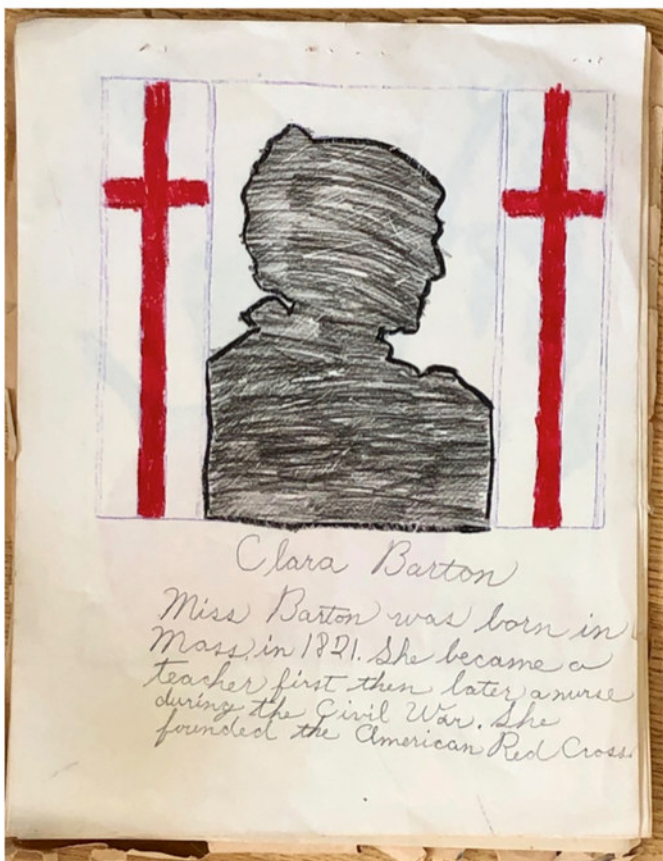 Clara Barton
Miss Barton was born in
Mass. in 1821. She became a
teacher first then later a nurse
during the Civil War. She
founded the American Red Cross.